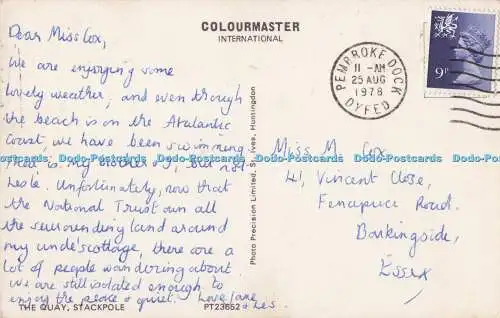 COLOURMASTER
INTERNATIONAL
Dear Miss Cox,
We are enjoying some
lovely weather, and even though
the beach is on the Atalantic
Coast, we have been swimming
that is my brother & I, but not
Leslie. Unfortunately, now that
the National Trust own all
the surrounding land around
my uncle's cottage, there are a
lot of people wandering about
We are still isolated enough to
enjoy the peace & quiet. Love Jane
& Les.
THE QUAY, STACKPOLE
PT23652
Photo Precision Limited, St. Ives, Huntingdon
PEMBROKE DOCK
11 - AM
25 AUG
1978
DYFED
9P
Miss M. Cox,
41, Vincent Close,
Road.
Barkingside,
Essex
Dodo-Postcards Dodo-Postcards Dodo-Postcards Dodo-Postcards Dodo-Postcards Dodo-Postcards